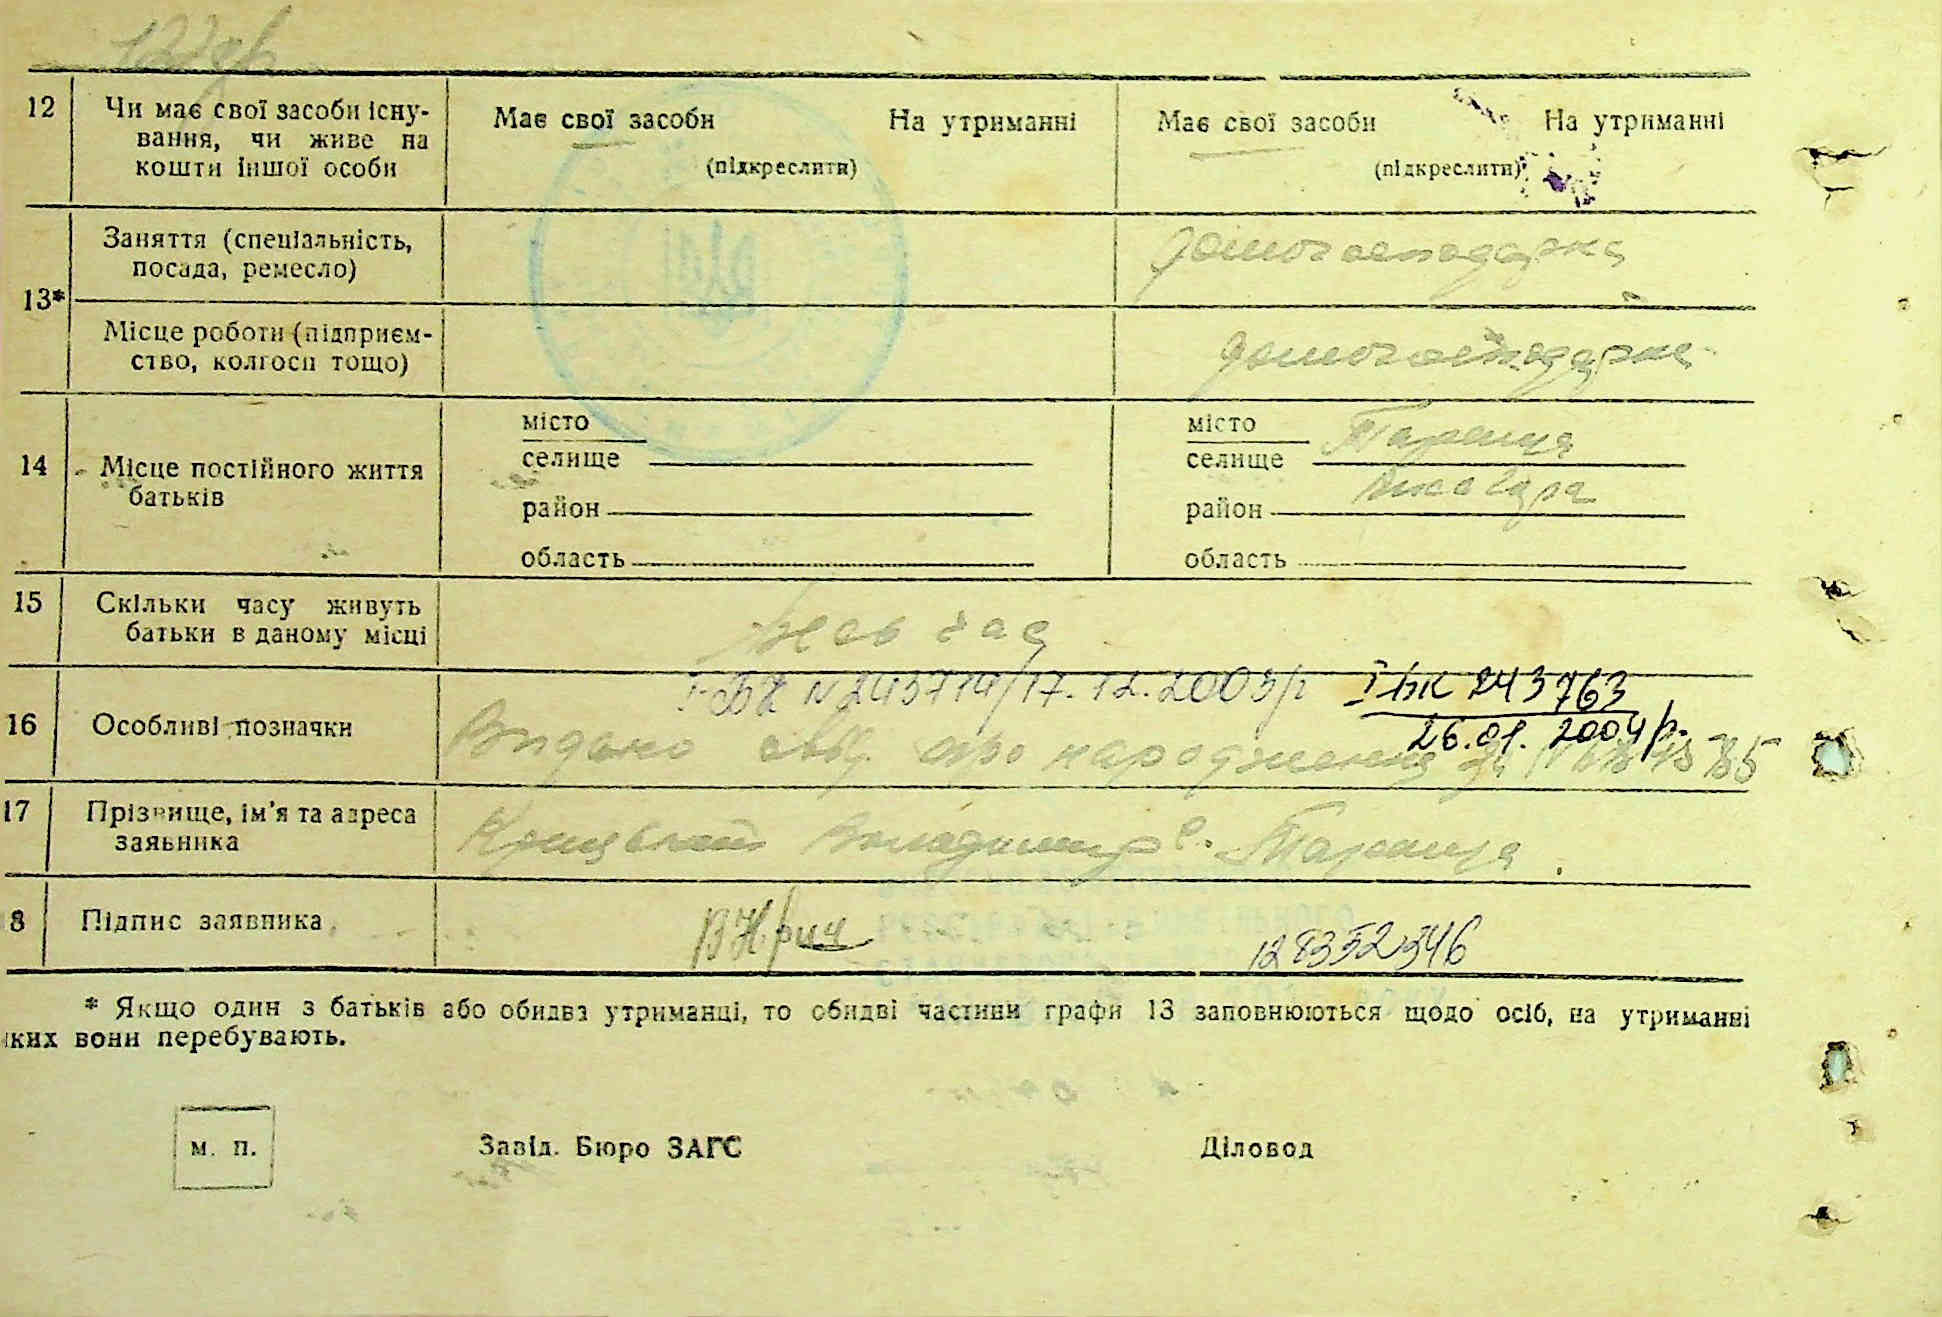 12 Чи має свої засоби існу-
вання, чи живе на
кошти іншої особи
Має свої засоби На утриманні
(підкреслити)
Має свої засоби На утриманні
(підкреслити)
13*
Заняття (спеціальність,
посада, ремесло)
домогосподарка
Місце роботи (підприєм-
ство, колгосп тощо)
домогосподарка
14 Місце постійного життя
батьків
місто
селище
район
область
місто
селище Тараща
район
область
15 Скільки часу живуть
батьки в даному місці
Весь час
16 Особливі позначки
І-БК N 243714/17.12.2003р І БК 243763
26.01. 2004р.
Видано свід. про народження
17 Прізвище, ім'я та адреса
заявника
Володимир Тараща
8 Підпис заявника
128352346
* Якщо один з батьків або обидва утриманці, то обидві частини графи 13 заповнюються щодо осіб, на утриманні
яких вони перебувають.
м. п.
Завід. Бюро ЗАГС
Діловод